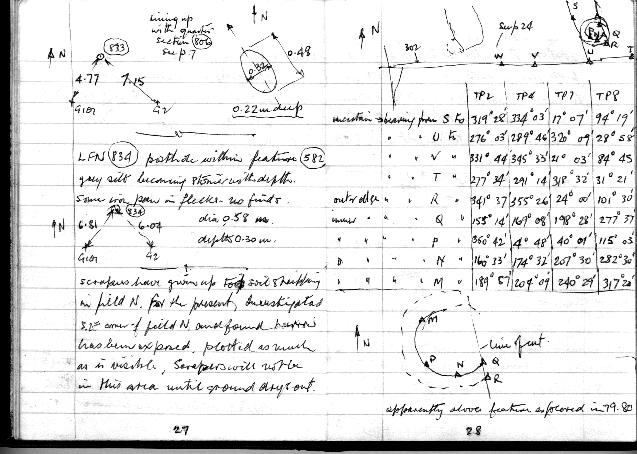 lining up
with quarter
section 806
see p. 7
N
833
4.77
7.15
G101
G2
N
0.32
0.48
0.22m deep
LFN 834 posthole within feature 582
grey silt becoming stonier with depth.
Some iron pan in flecks. no finds.
dia 0.58 m.
depth 0.30 m.
N
834
6.81
6.04
G101
G2
scrapers have given up soil stripping
in field N. for the present, Investigated
S.E. corner of field N. and found barrow
has been exposed. plotted as much
as is visible, Scrapers will not be
in this area until ground dry out.
27
N
302
see p 24
W
V
U
T
S
P
N
Q
R
TP2 TP6 TP7 TP8
bearing from S to 319° 28' 334° 03' 17° 07' 94° 19'
" " U to 276° 03' 289° 46' 320° 09' 28° 58'
" " V " 331° 44' 345° 33' 21° 03' 84° 45'
" " T " 277° 34' 291° 14' 318° 32' 31° 21'
outer edge " R " 341° 37' 355° 26' 24° 00' 101° 30'
inner " Q " 155° 14' 169° 08' 198° 28' 277° 37'
" " P " 350° 42' 4° 48' 40° 01' 115° 03'
" " N " 160° 33' 174° 32' 207° 30' 282° 30'
" " M " 189° 57' 204° 09' 240° 29' 317° 20'
N
M
P
N
Q
R
line of cut
apparently above feature as plotted in 79.80
28